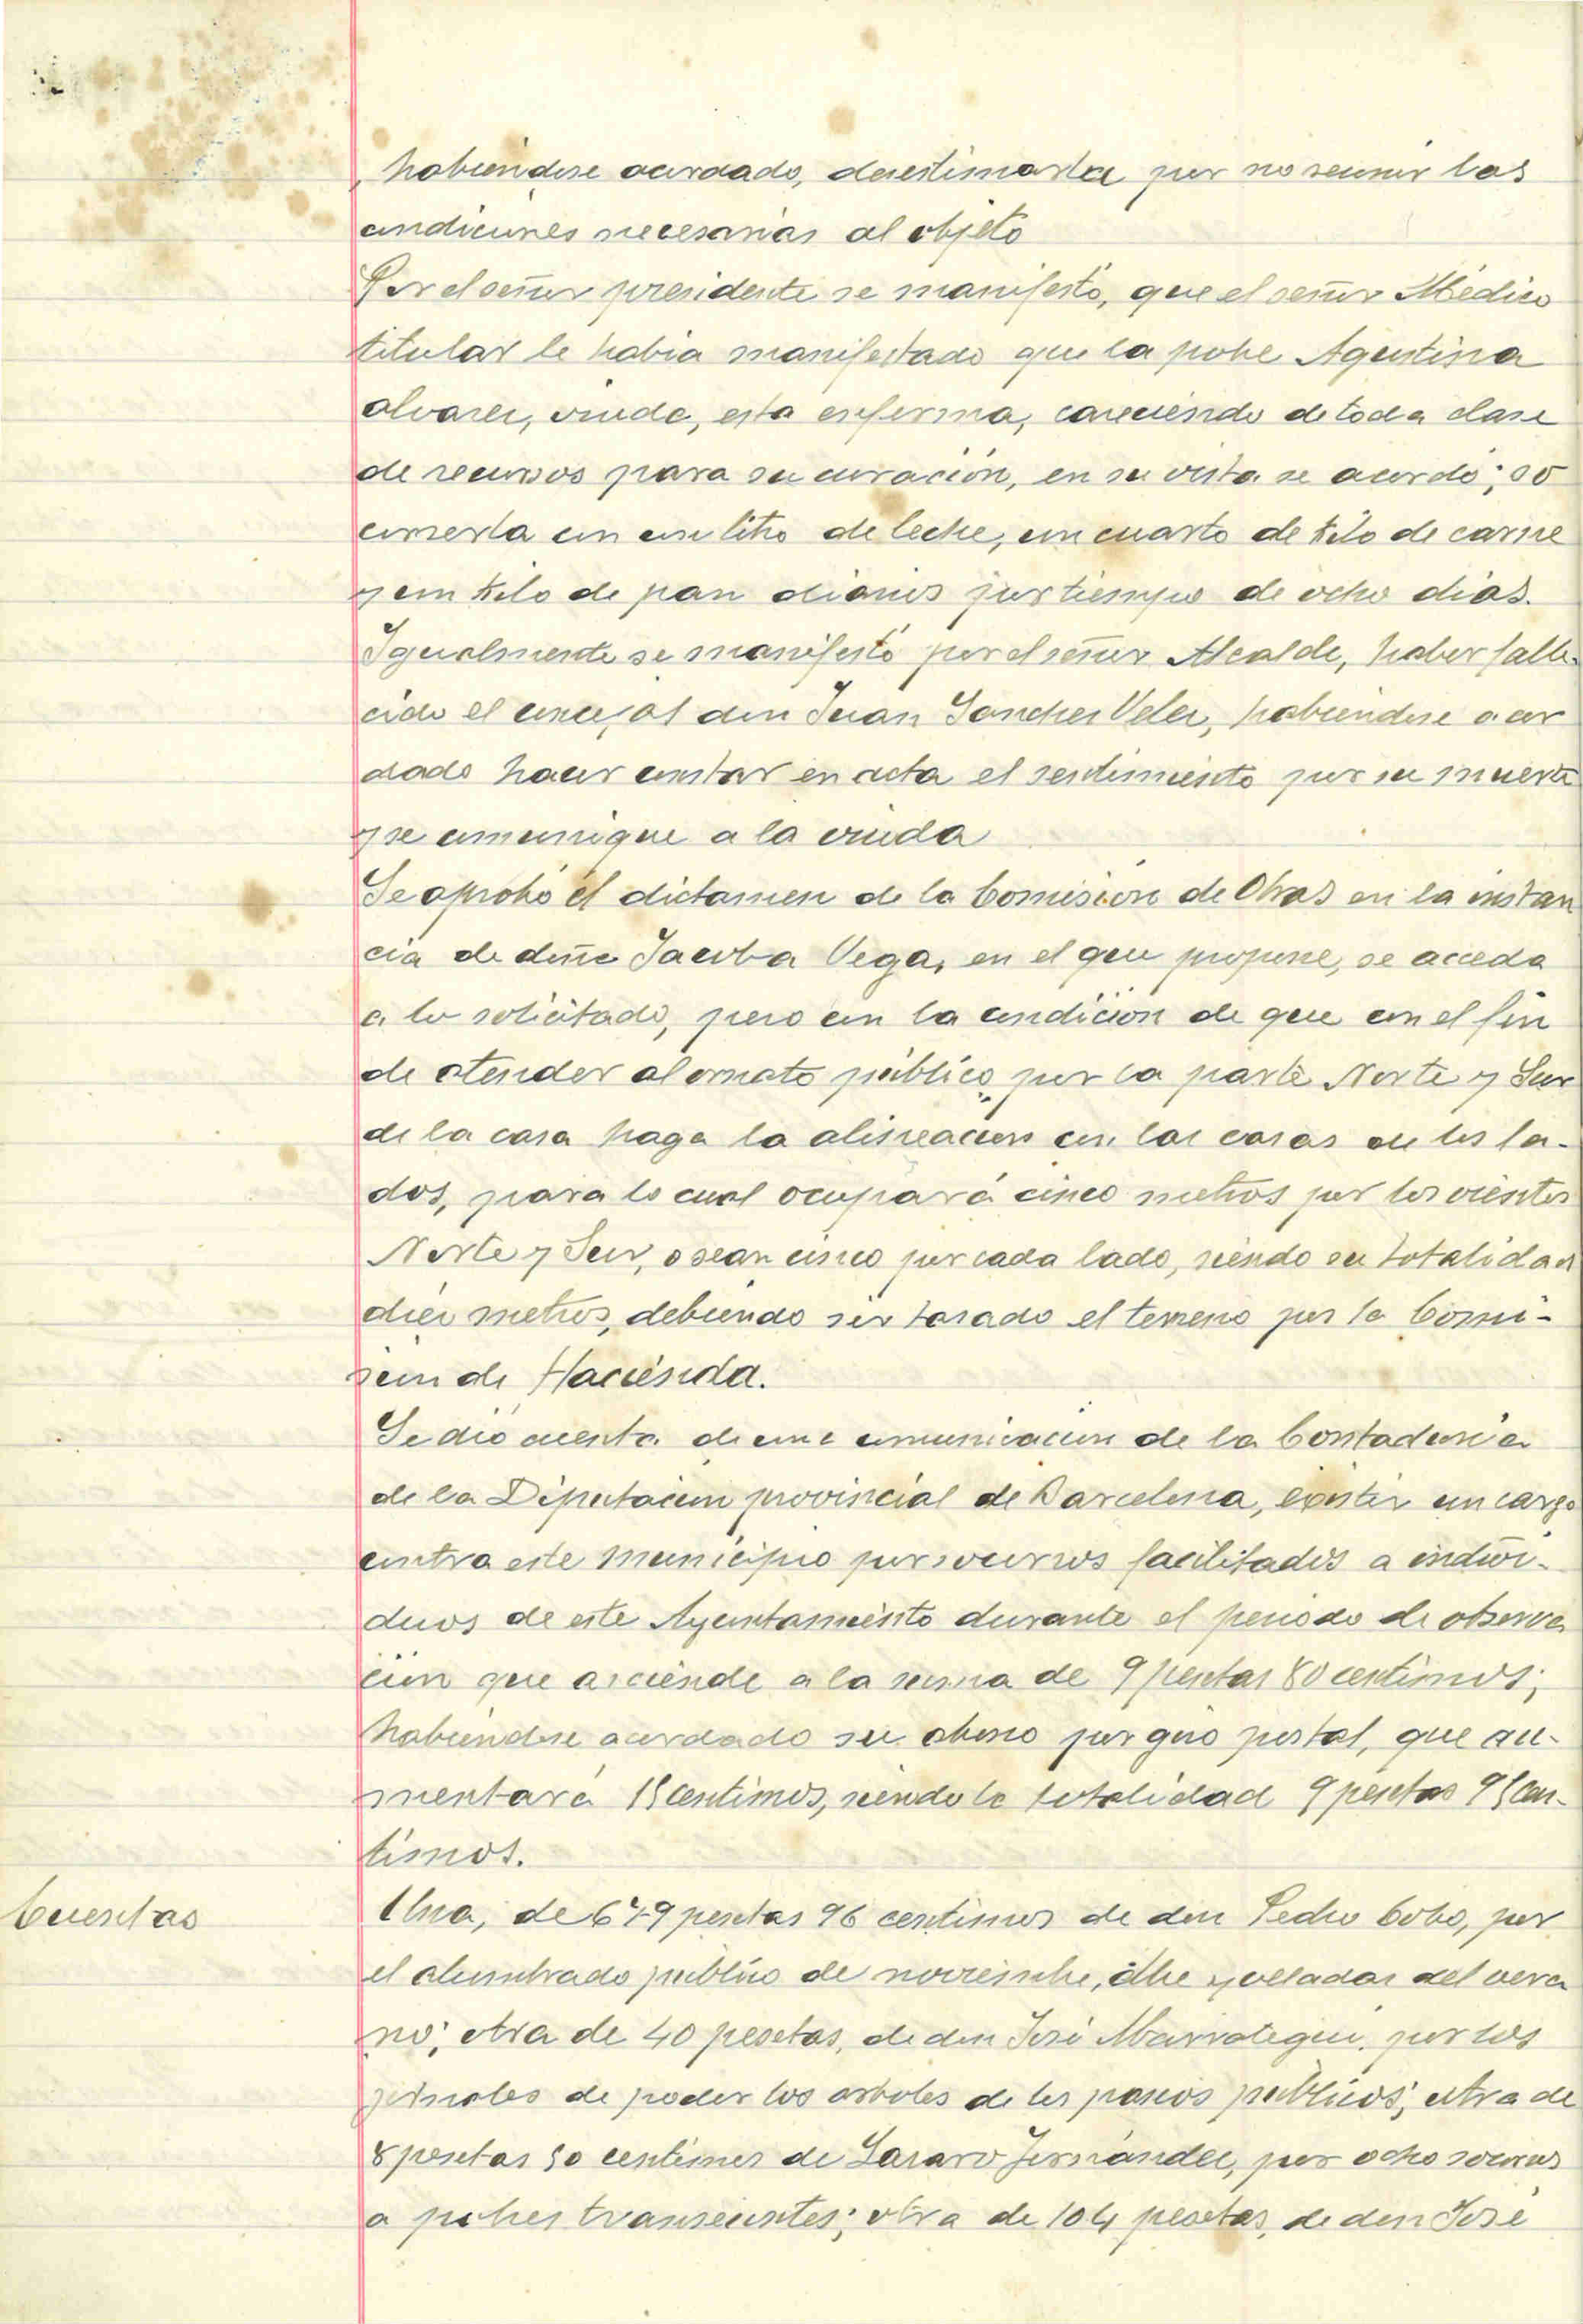 habiendose acordado, desestimarla por no reunir las
condiciones necesarias al objeto
Por el señor presidente se manifestó, que el señor Médico
titular le habia manifestado que la pobre Agustina
alvarez, viuda, esta enferma, careciendo de toda clase
de recursos para su curación, en su vista se acordó; so
correrla con un litro de leche, un cuarto de kilo de carne
y un kilo de pan diarios por tiempo de ocho dias.
Igualmente se manifestó por el señor Alcalde, haber falle-
cido el concejal don Juan Sanchez Velez, habiendose acor
dado hacer constar en acta el sentimiento por su muerte
y se comunique a la viuda
Se aprobó el dictamen de la Comisión de Obras en la instan
cia de doña Jacoba Vega, en el que propone, se acceda
a lo solicitado, pero con la condición de que con el fin
de atender al ornato público por la parte Norte y Sur
de la casa haga la alineacion con las casas de los la-
dos, para lo cual ocupará cinco metros por los vientos
Norte y Sur, o sean cinco por cada lado, siendo su totalidad
diez metros, debiendo ser tasado el terreno por la Comi-
sion de Hacienda.
Se dió cuenta de una comunicacion de la Contaduria
de la Diputacion provincial de Barcelona, existir un cargo
contra este municipio por socorros facilitados a indivi-
duos de este Ayuntamiento durante el periodo de observa
cion que asciende a la suma de 9 pesetas 80 centimos;
habiendose acordado su abono por giro postal, que au-
mentará 15 centimos, siendo la totalidad 9 pesetas 95 cen-
timos.
Cuentas
Una, de 679 pesetas 96 centimos de don Pedro Cobo, por
el alumbrado publico de noviembre, dbre y veladas del vera
no; otra de 40 pesetas, de don José Marrategui, por los
jornales de podar los arboles de los paseos publicos; otra de
8 pesetas 50 centimos de Lazaro Fernández, por ocho socorros
a pobres transeuntes; otra de 104 pesetas, de don José